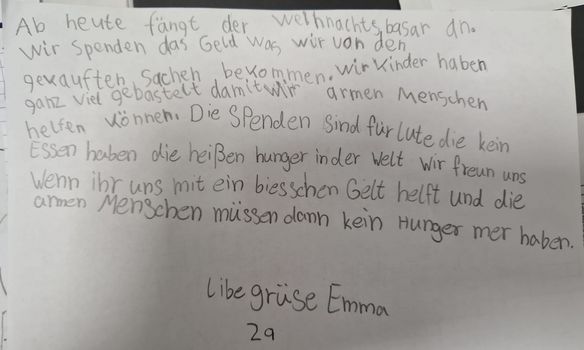 Ab heute fängt der Weihnachtsbasar an.
Wir Spenden das Geld was wir von den
gekauften Sachen bekommen. Wir Kinder haben
ganz viel gebastelt damit wir armen Menschen
helfen können. Die Spenden Sind für lute die kein
Essen haben die heißen hunger in der Welt wir freun uns
Wenn ihr uns mit ein biesschen Gelt helft und die
armen Menschen müssen dann kein Hunger mer haben.
Libe grüse Emma
2a